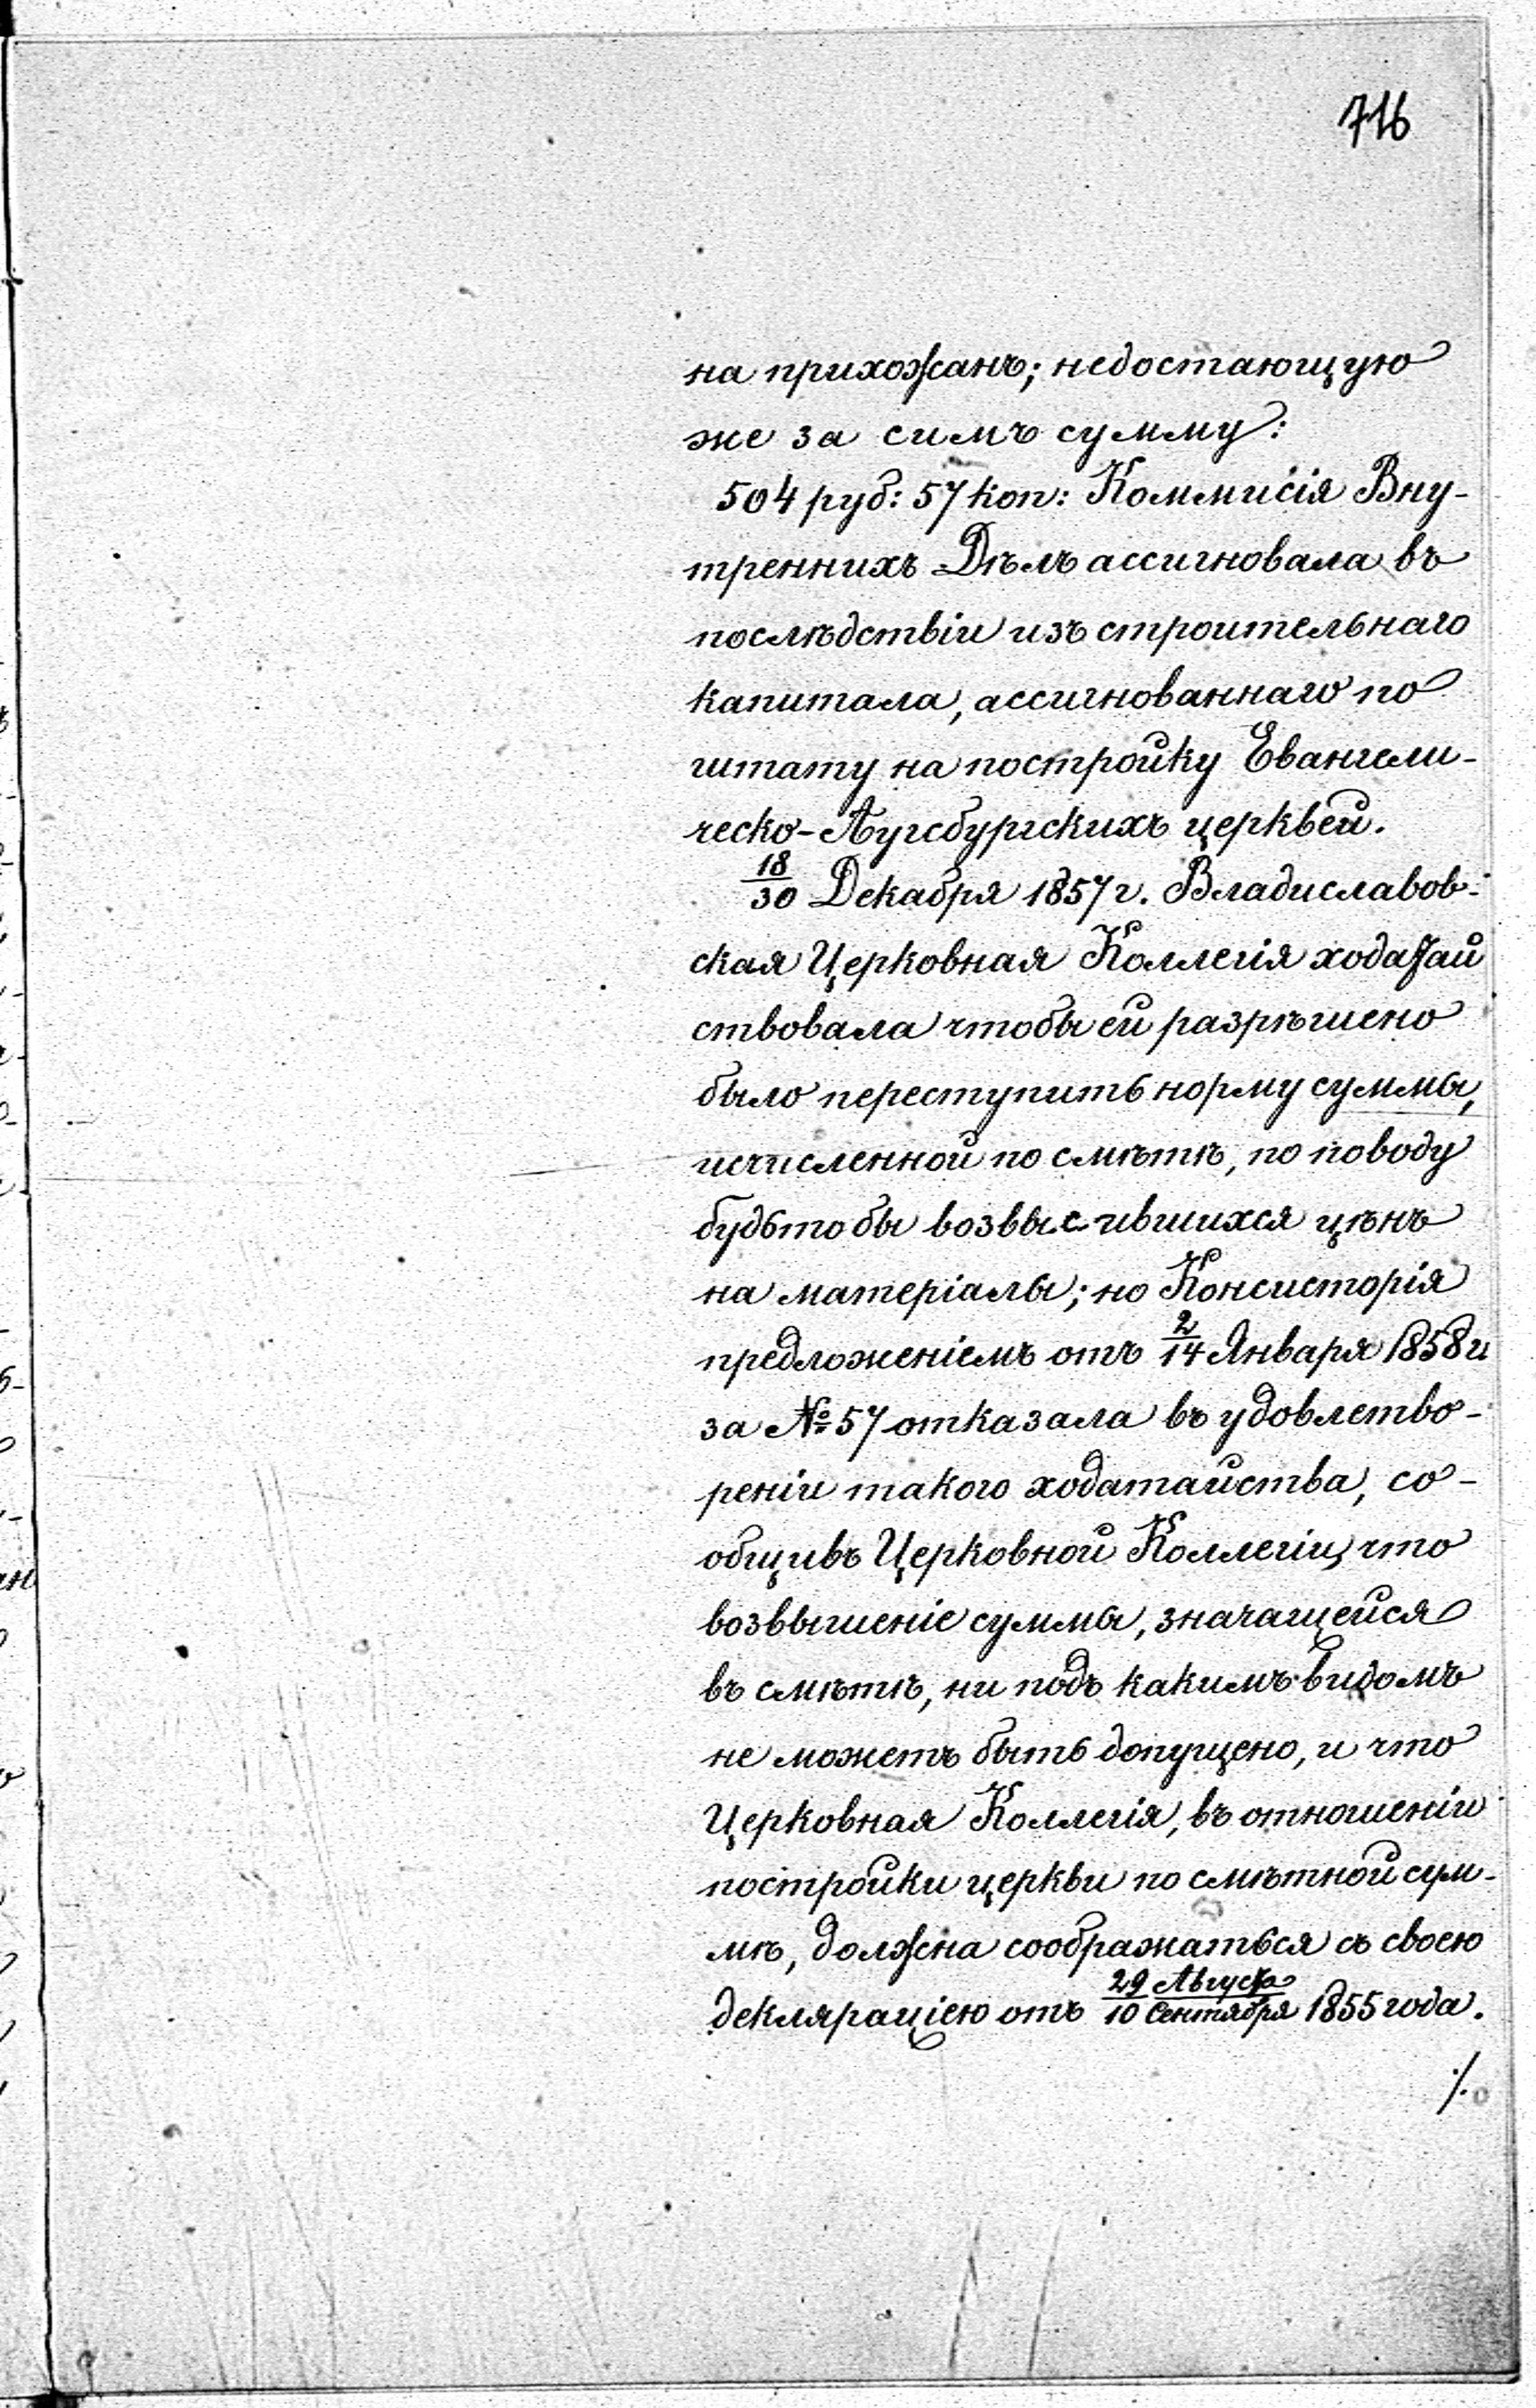 716
на прихожанъ; недостающую
же за симъ сумму:
504 руб: 57 коп: Коммисія Вну-
треннихъ Дѣлъ ассигновала въ
послѣдствіи изъ строительнаго
капитала, ассигнованнаго по
штату на постройку Евангели-
ческо-Аугсбургскихъ церквей.
18/30 Декабря 1857 г. Владиславов-
ская Церковная Коллегія ходатай
ствовала чтобы ей разрѣшено
было переступить норму суммы,
исчисленной по смѣтѣ, по поводу
будьто бы возвысившихся цѣнъ
на матеріалы; но Консисторія
предложеніемъ отъ 2/14 Января 1858 г
за № 57 отказала въ удовлетво-
реніи такого ходатайства, со-
общивъ Церковной Коллегіи, что
возвышеніе суммы, значащейся
въ смѣтѣ, ни подъ какимъ видомъ
не можетъ быть допущено, и что
Церковная Коллегія, въ отношеніи
постройки церкви по смѣтной сум-
мѣ, должна соображаться съ своею
декляраціею отъ 29 Августа/10 Сентября 1855 года.
./.